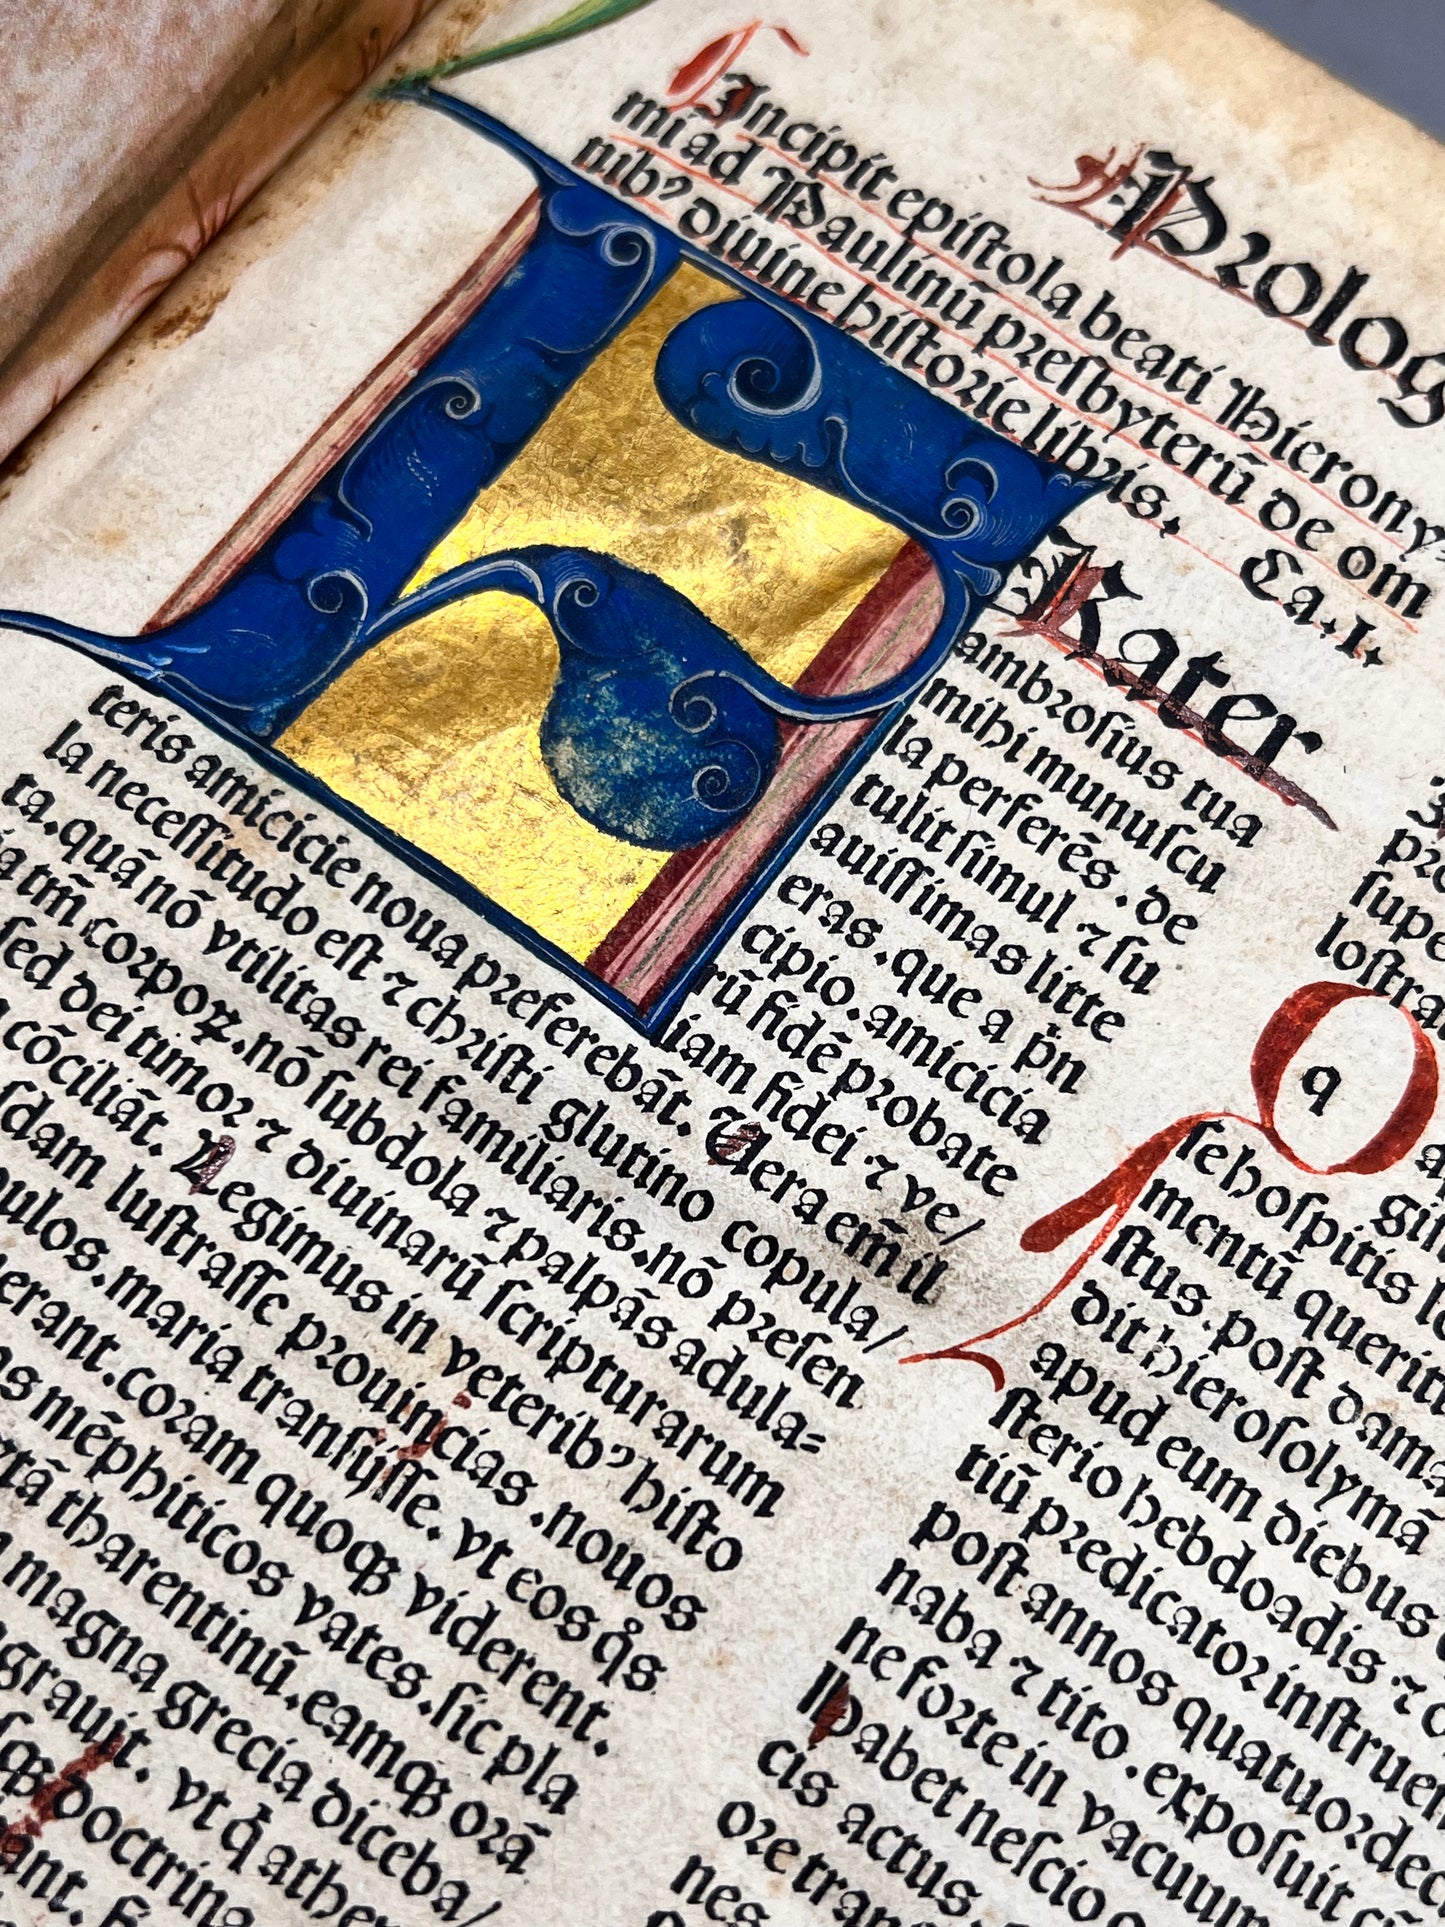 Prolog
Incipit epistola beati Hierony⸗
mi ad Paulinū presbyterū de om
nibꝰ diuine historie libris. Ca.I.
FRater
ambrosius tua
mihi munuscu
la perferēs. de
tulit simul ⁊ su
auissimas litte
eras. que a pͥn
cipio. amicicia
rū fidē probate
iam fidei ⁊ ve/
teris amicicie noua preferebāt. Uera em̄ il
la necessitudo est ⁊ christi glutino copula/
ta. quā nō vtilitas rei familiaris. nō presen
tm̄ corpoꝝ. nō subdola ⁊ palpās adula=
sed dei timor ⁊ diuinarū scripturarum
cōciliāt. Legimus in veteribꝰ histo
lustrasse prouincias. nouos
maria transijsse. vt eos qͦs
coram quoqꝫ viderent.
mēphiticos vates. sic pla
tharentinū. eamqꝫ orā
magna grecia diceba/
vt qͥ athe
doctrina
q
se hospitis
mentū querit
stus. post dam
dit hierosolymā
apud eum diebus
sterio hebdoadis ⁊
tiū predicator instruen
post annos quatuordec
naba ⁊ tito. exposuit
ne forte in vacuum
Habet nescio
cis actus
ore tran
nes